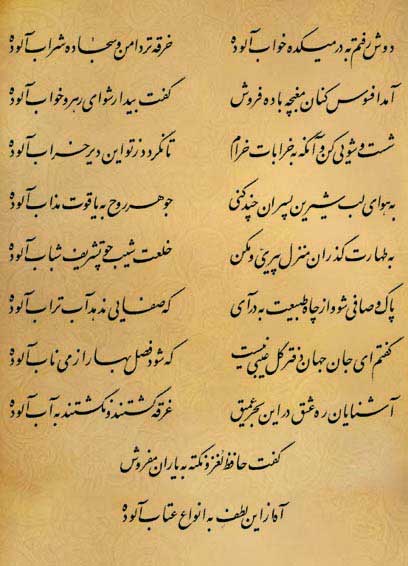 دوش رفتم به در میکده خواب آلوده خرقه تر دامن و سجاده شراب آلوده
آمد افسوس کنان مغبچه باده فروش گفت بیدار شو ای رهرو خواب آلوده
شست و شویی کن و آنگه به خرابات خرام تا نگردد ز تو این دیر خراب آلوده
به هوای لب شیرین پسران چند کنی جوهر روح به یاقوت مذاب آلوده
به طهارت گذران منزل پیری و مکن خلعت شیب چو تشریف شباب آلوده
پاک و صافی شو و از چاه طبیعت به در آی که صفایی ندهد آب تراب آلوده
گفتم ای جان جهان دفتر گل عیبی نیست که شود فصل بهار از می ناب آلوده
آشنایان ره عشق در این بحر عمیق غرقه گشتند و نگشتند به آب آلوده
گفت حافظ لغز و نکته به یاران مفروش
آه از این لطف به انواع عتاب آلوده